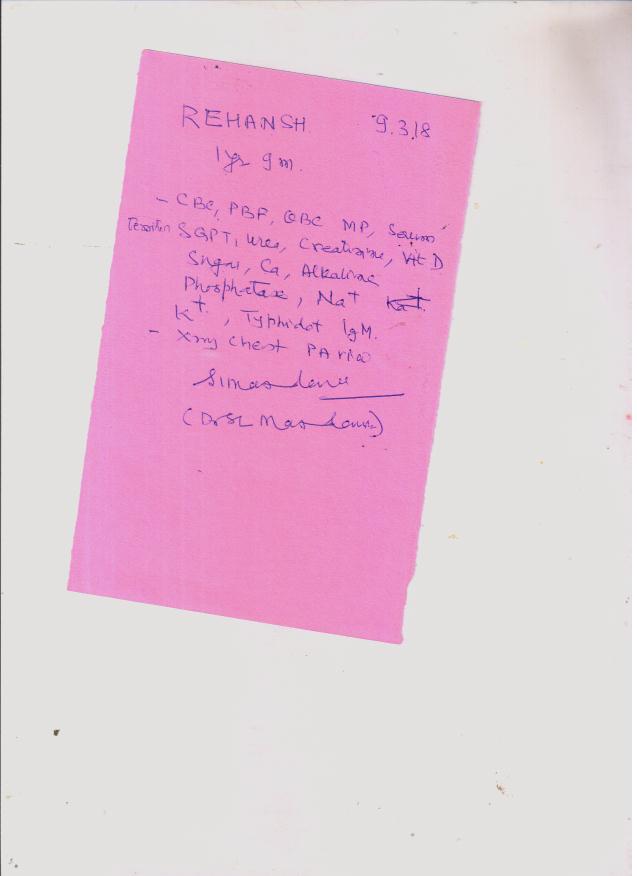 REHANSH 9.3.18
1 yr 9 m.
- CBC, PBF, QBC MP, Serum
Ferritin SGPT, Urea, Creatinine, Vit D
Sugar, Ca, Alkaline
Phosphatase, Na+
K+, Typhidot IgM.
- Xray Chest PA view
(Dr SL